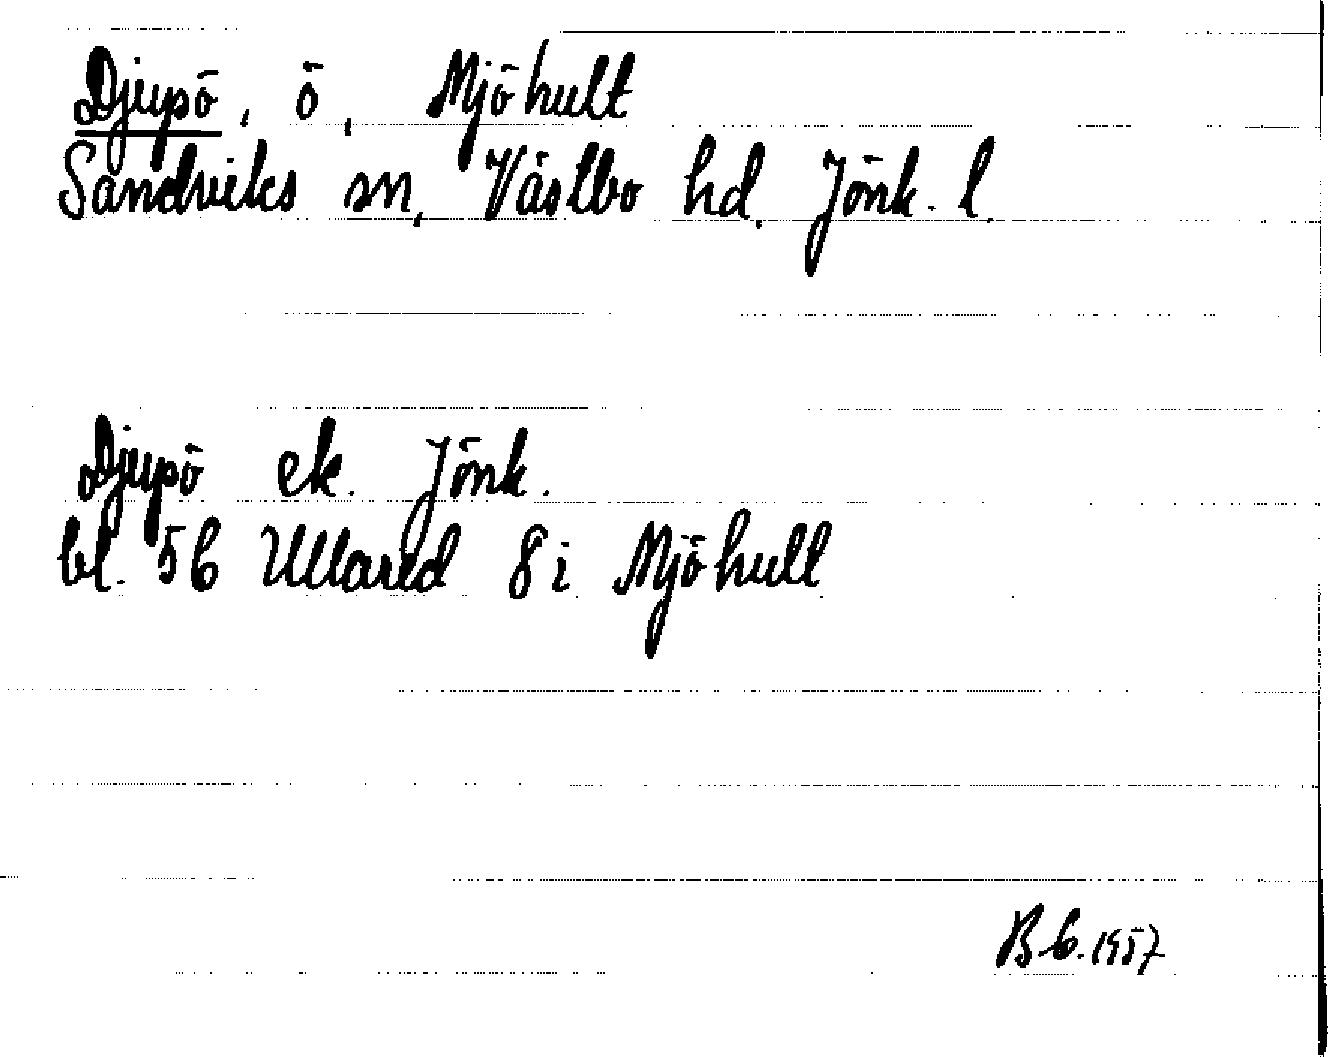 Djupö, ö, Mjöhult
Sandviks sn, Västbo hd. Jönk. l.
Djupö ek. Jönk.
bl. 56 Ullared 8 i Mjöhult
1957